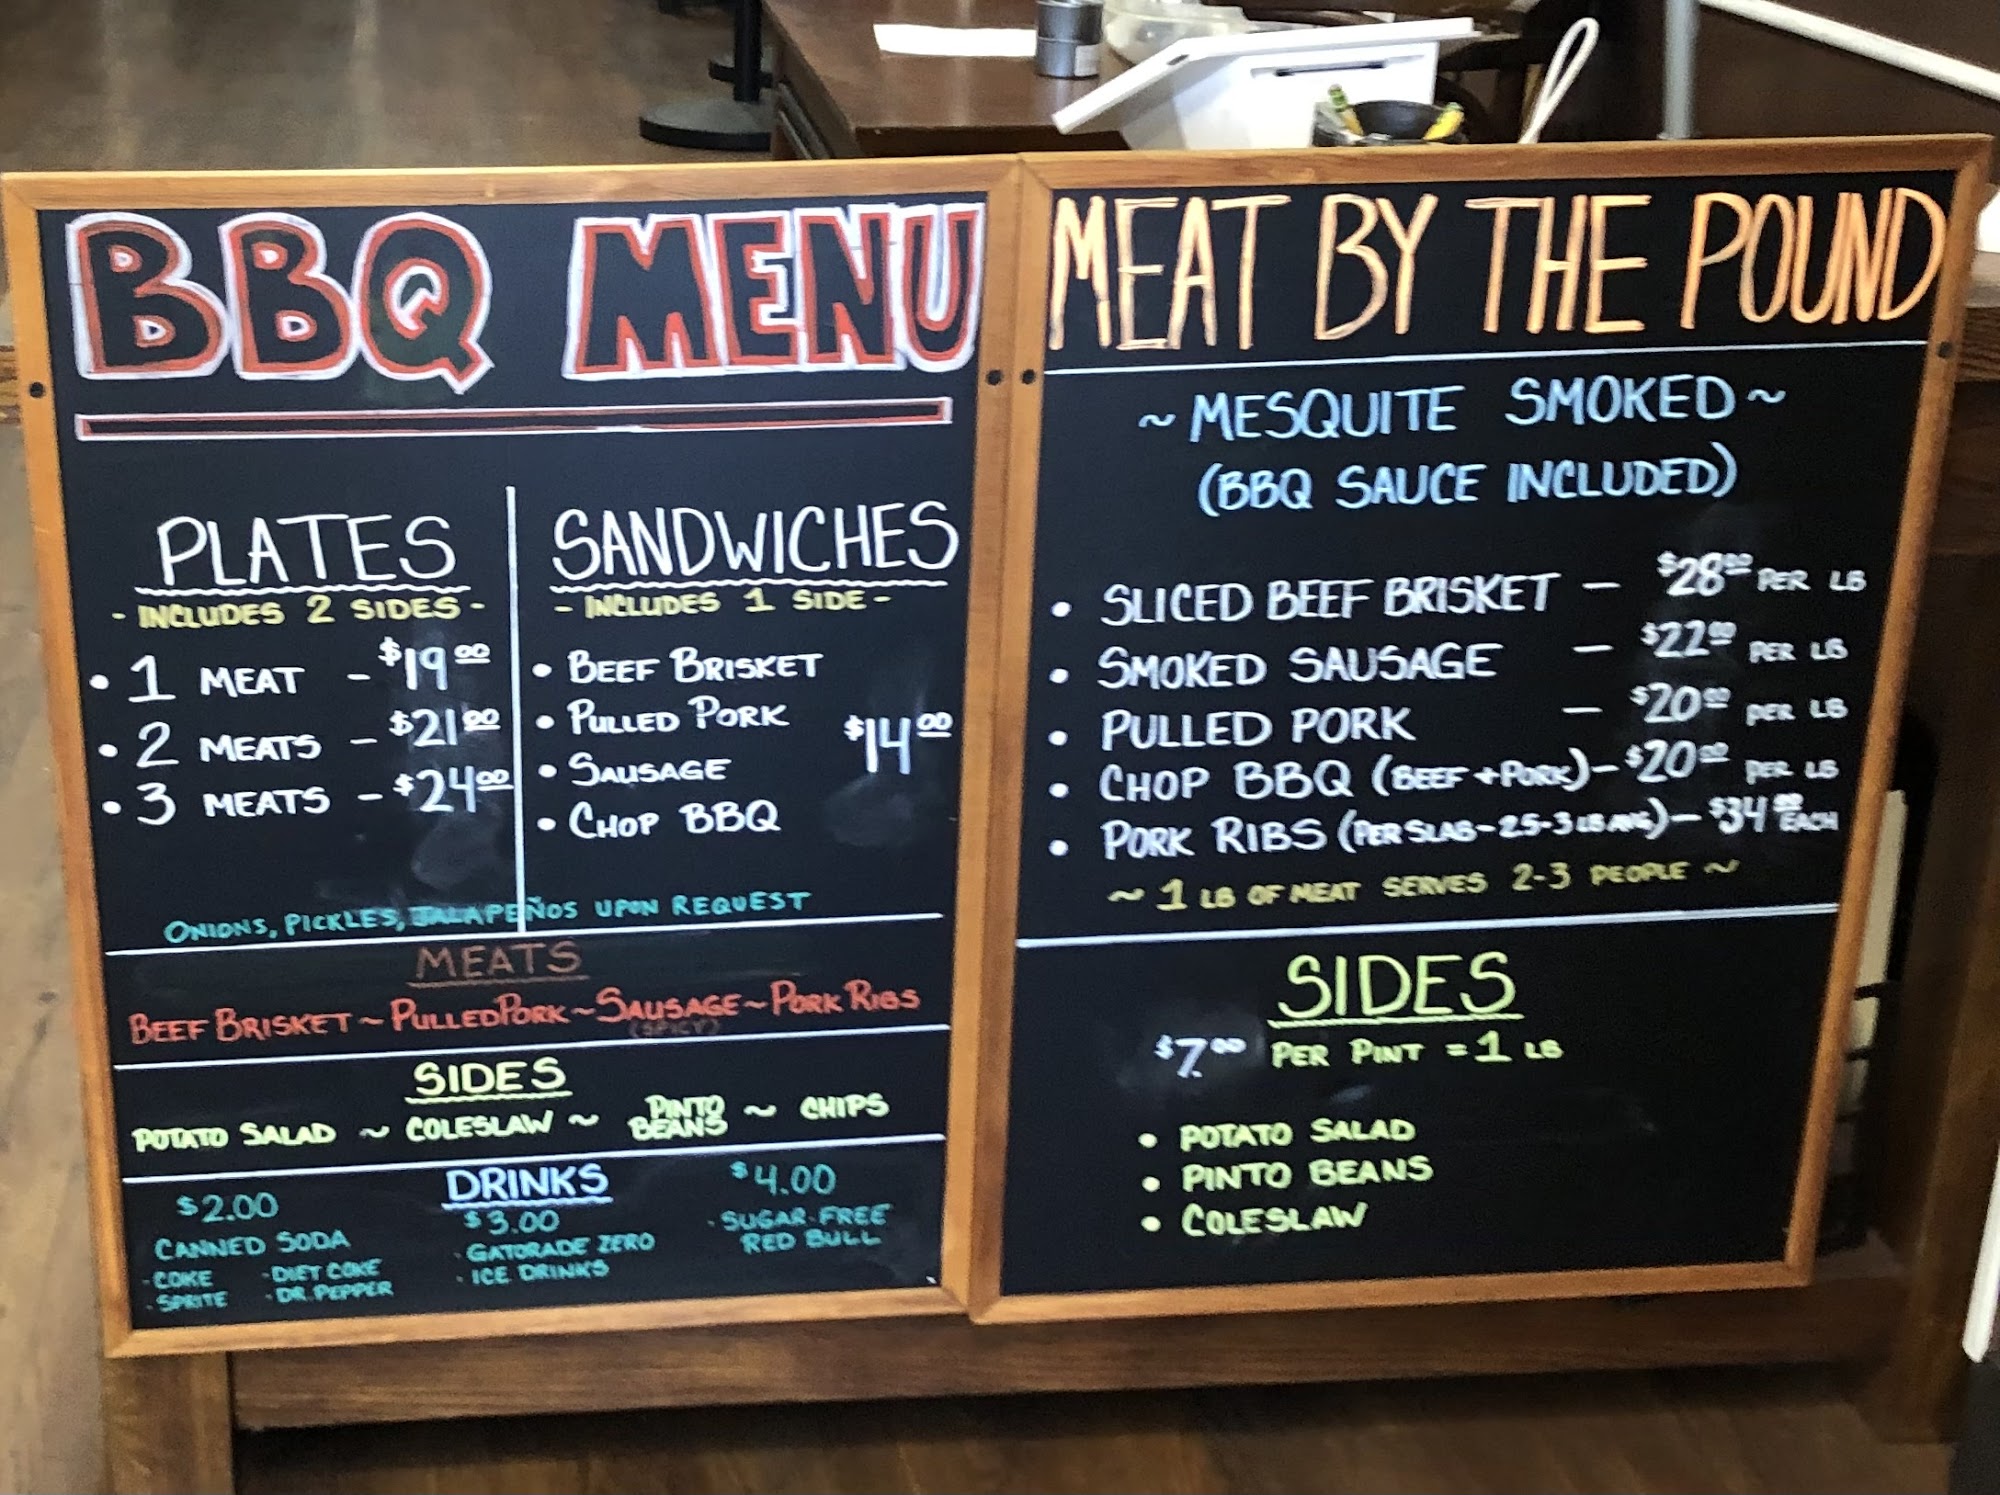 BBQ MENU
PLATES
- INCLUDES 2 SIDES -
• 1 MEAT - $19.00
• 2 MEATS - $21.00
• 3 MEATS - $24.00
SANDWICHES
- INCLUDES 1 SIDE -
• BEEF BRISKET
• PULLED PORK
$14.00
• SAUSAGE
• CHOP BBQ
ONIONS, PICKLES, JALAPEÑOS UPON REQUEST
MEATS
BEEF BRISKET ~ PULLED PORK ~ SAUSAGE ~ PORK RIBS
(SPICY)
SIDES
POTATO SALAD ~ COLESLAW ~ PINTO BEANS ~ CHIPS
DRINKS
$2.00
CANNED SODA
· COKE · DIET COKE
· SPRITE · DR. PEPPER
$3.00
· GATORADE ZERO
· ICE DRINKS
$4.00
· SUGAR-FREE
RED BULL
MEAT BY THE POUND
~ MESQUITE SMOKED ~
(BBQ SAUCE INCLUDED)
• SLICED BEEF BRISKET — $28.00 PER LB
• SMOKED SAUSAGE — $22.00 PER LB
• PULLED PORK — $20.00 PER LB
• CHOP BBQ (BEEF + PORK) — $20.00 PER LB
• PORK RIBS (PER SLAB - 2.5-3 LB AVG) — $34.00 EACH
~ 1 LB OF MEAT SERVES 2-3 PEOPLE ~
SIDES
$7.00 PER PINT = 1 LB
• POTATO SALAD
• PINTO BEANS
• COLESLAW